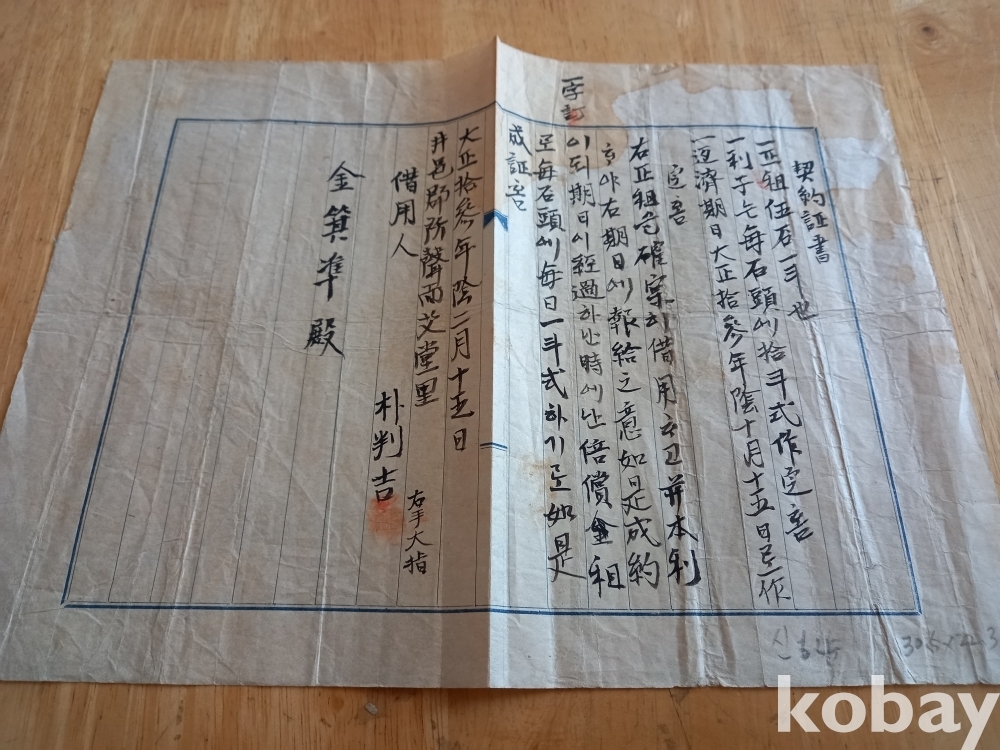 契約証書
一正租伍石一斗也
一利子는每石頭에拾斗式作定홈
一返濟期日大正拾參年陰十月十五日로作
定홈
右正租을確實히借用하고並本利
하야右期日에報給之意如是成約
이되期日이經過하난時에난倍償金租
로每石頭에每日一斗式하기로如是
成証홈
一字訂
大正拾參年陰二月十五日
井邑郡所聲面艾堂里
借用人
朴判吉
右手大指
金箕準 殿
kobay